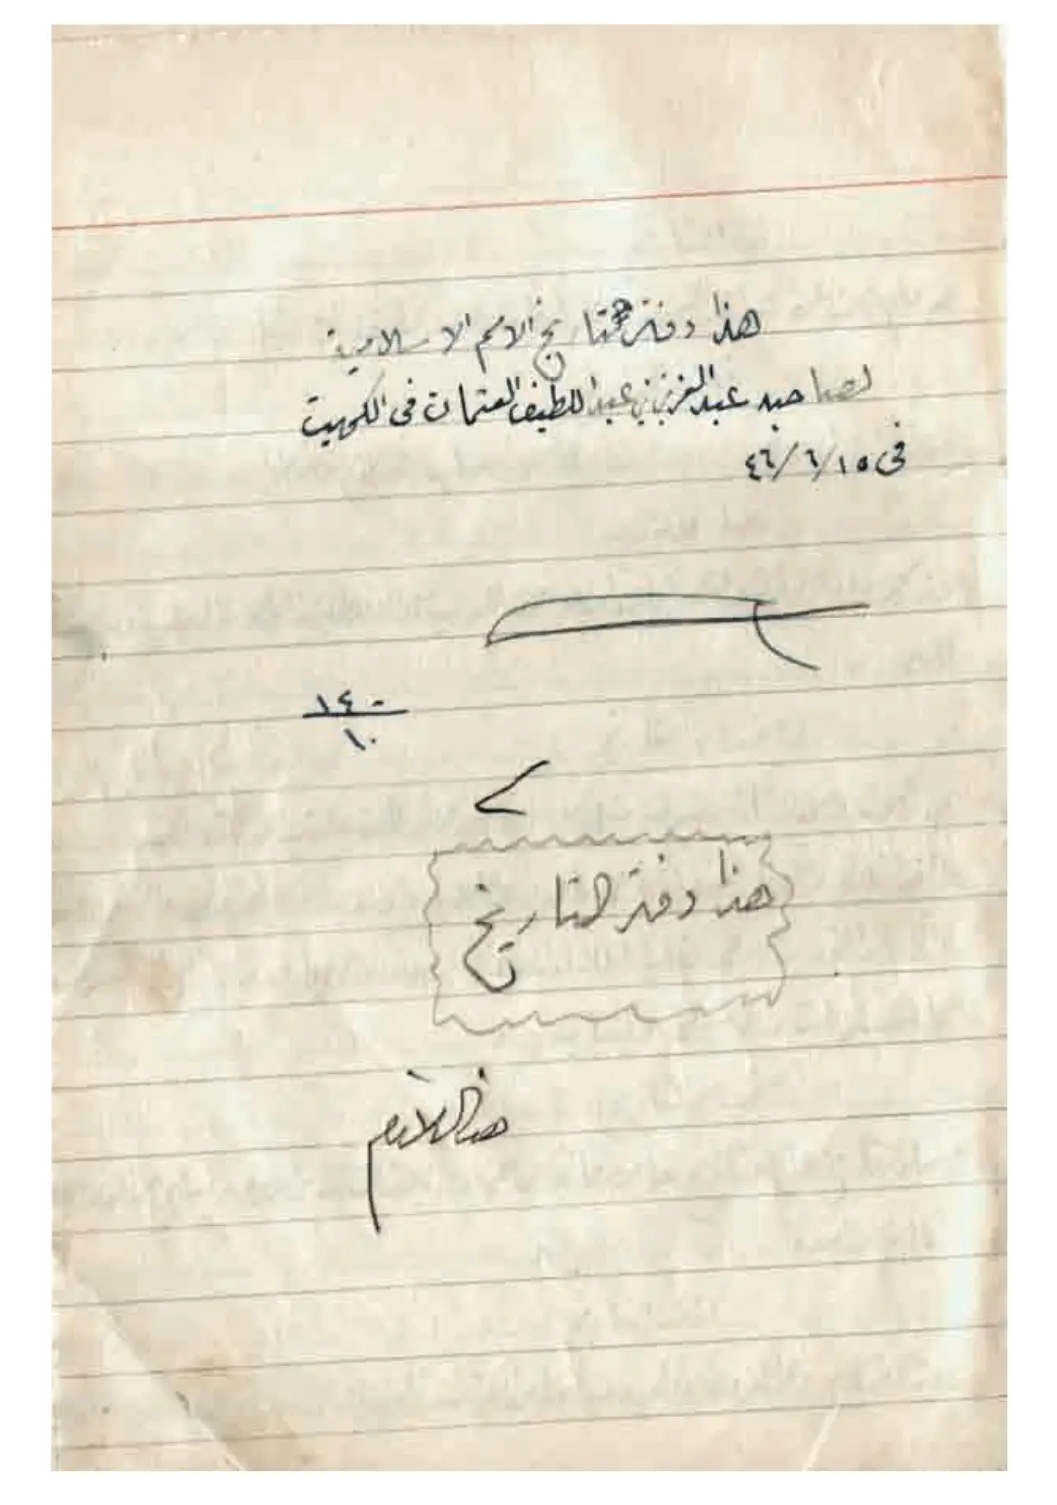 هذا دفتر تاريخ الامم الاسلامية
لصاحبه عبدالعزيز بن عبداللطيف العثمان فى الكويت
فى ١٥/٦/٤٦
١٤٠
١٠
هذا دفتر التاريخ
هذا